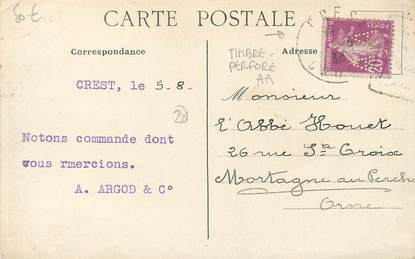 50 €
CARTE POSTALE
Correspondance
Adresse
TIMBRE-
PERFORÉ
AA
CREST, le 5-8-
28
Notons commande dont
vous rmercions.
A. ARGOD & C°
Monsieur
l'Abbé Houet
26 rue Ste Croix
Mortagne au Perche
Orne